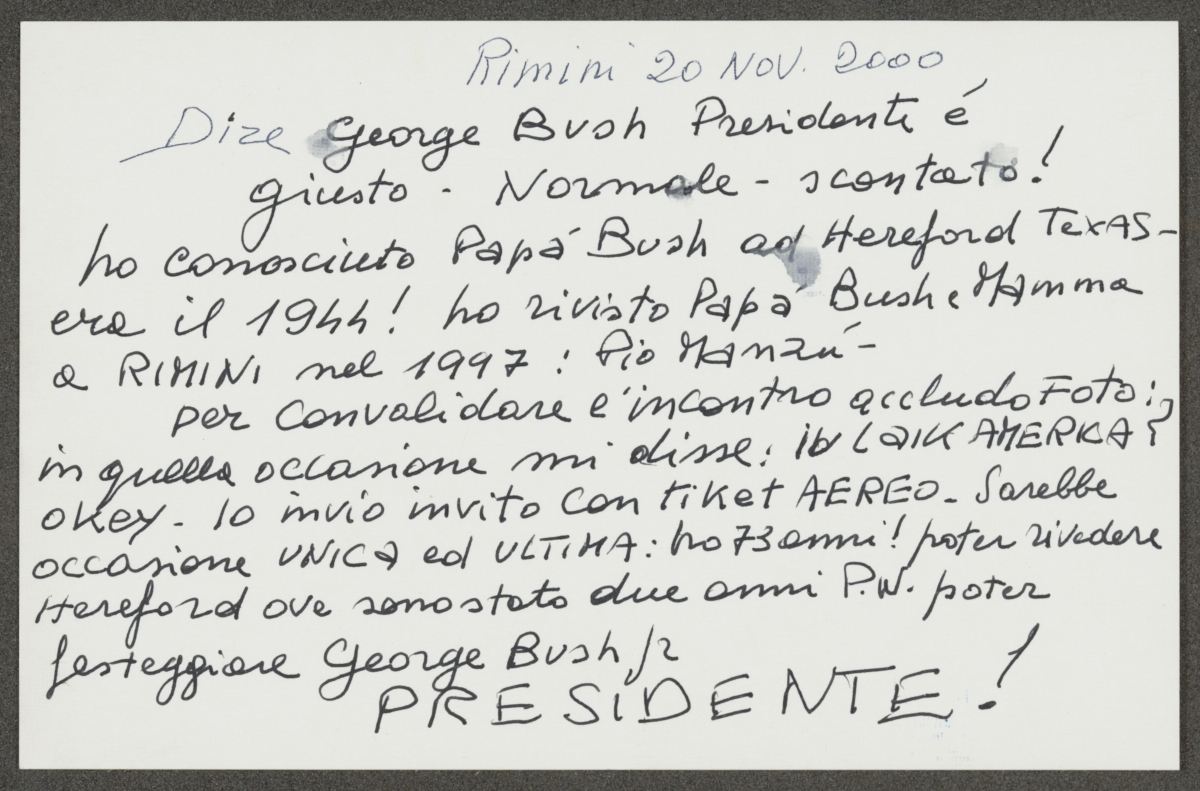 Rimini 20 NOV. 2000
Dire George Bush Presidente é
giusto - Normale - scontato!
ho conosciuto Papá Bush ad Hereford TEXAS -
era il 1944! ho rivisto Papá Bush e Mamma
a RIMINI nel 1997: Pio Manzú -
per convalidare l'incontro accludo FOTO:
in quella occasione mi disse: iu LaIK AMERIKA?
OKEY - Io invio invito con tiket AEREO - Sarebbe
occasione UNICA ed ULTIMA: ho 73 anni! poter rivedere
Hereford ove sono stato due anni P.W. poter
festeggiare George Bush Jr
PRESIDENTE!